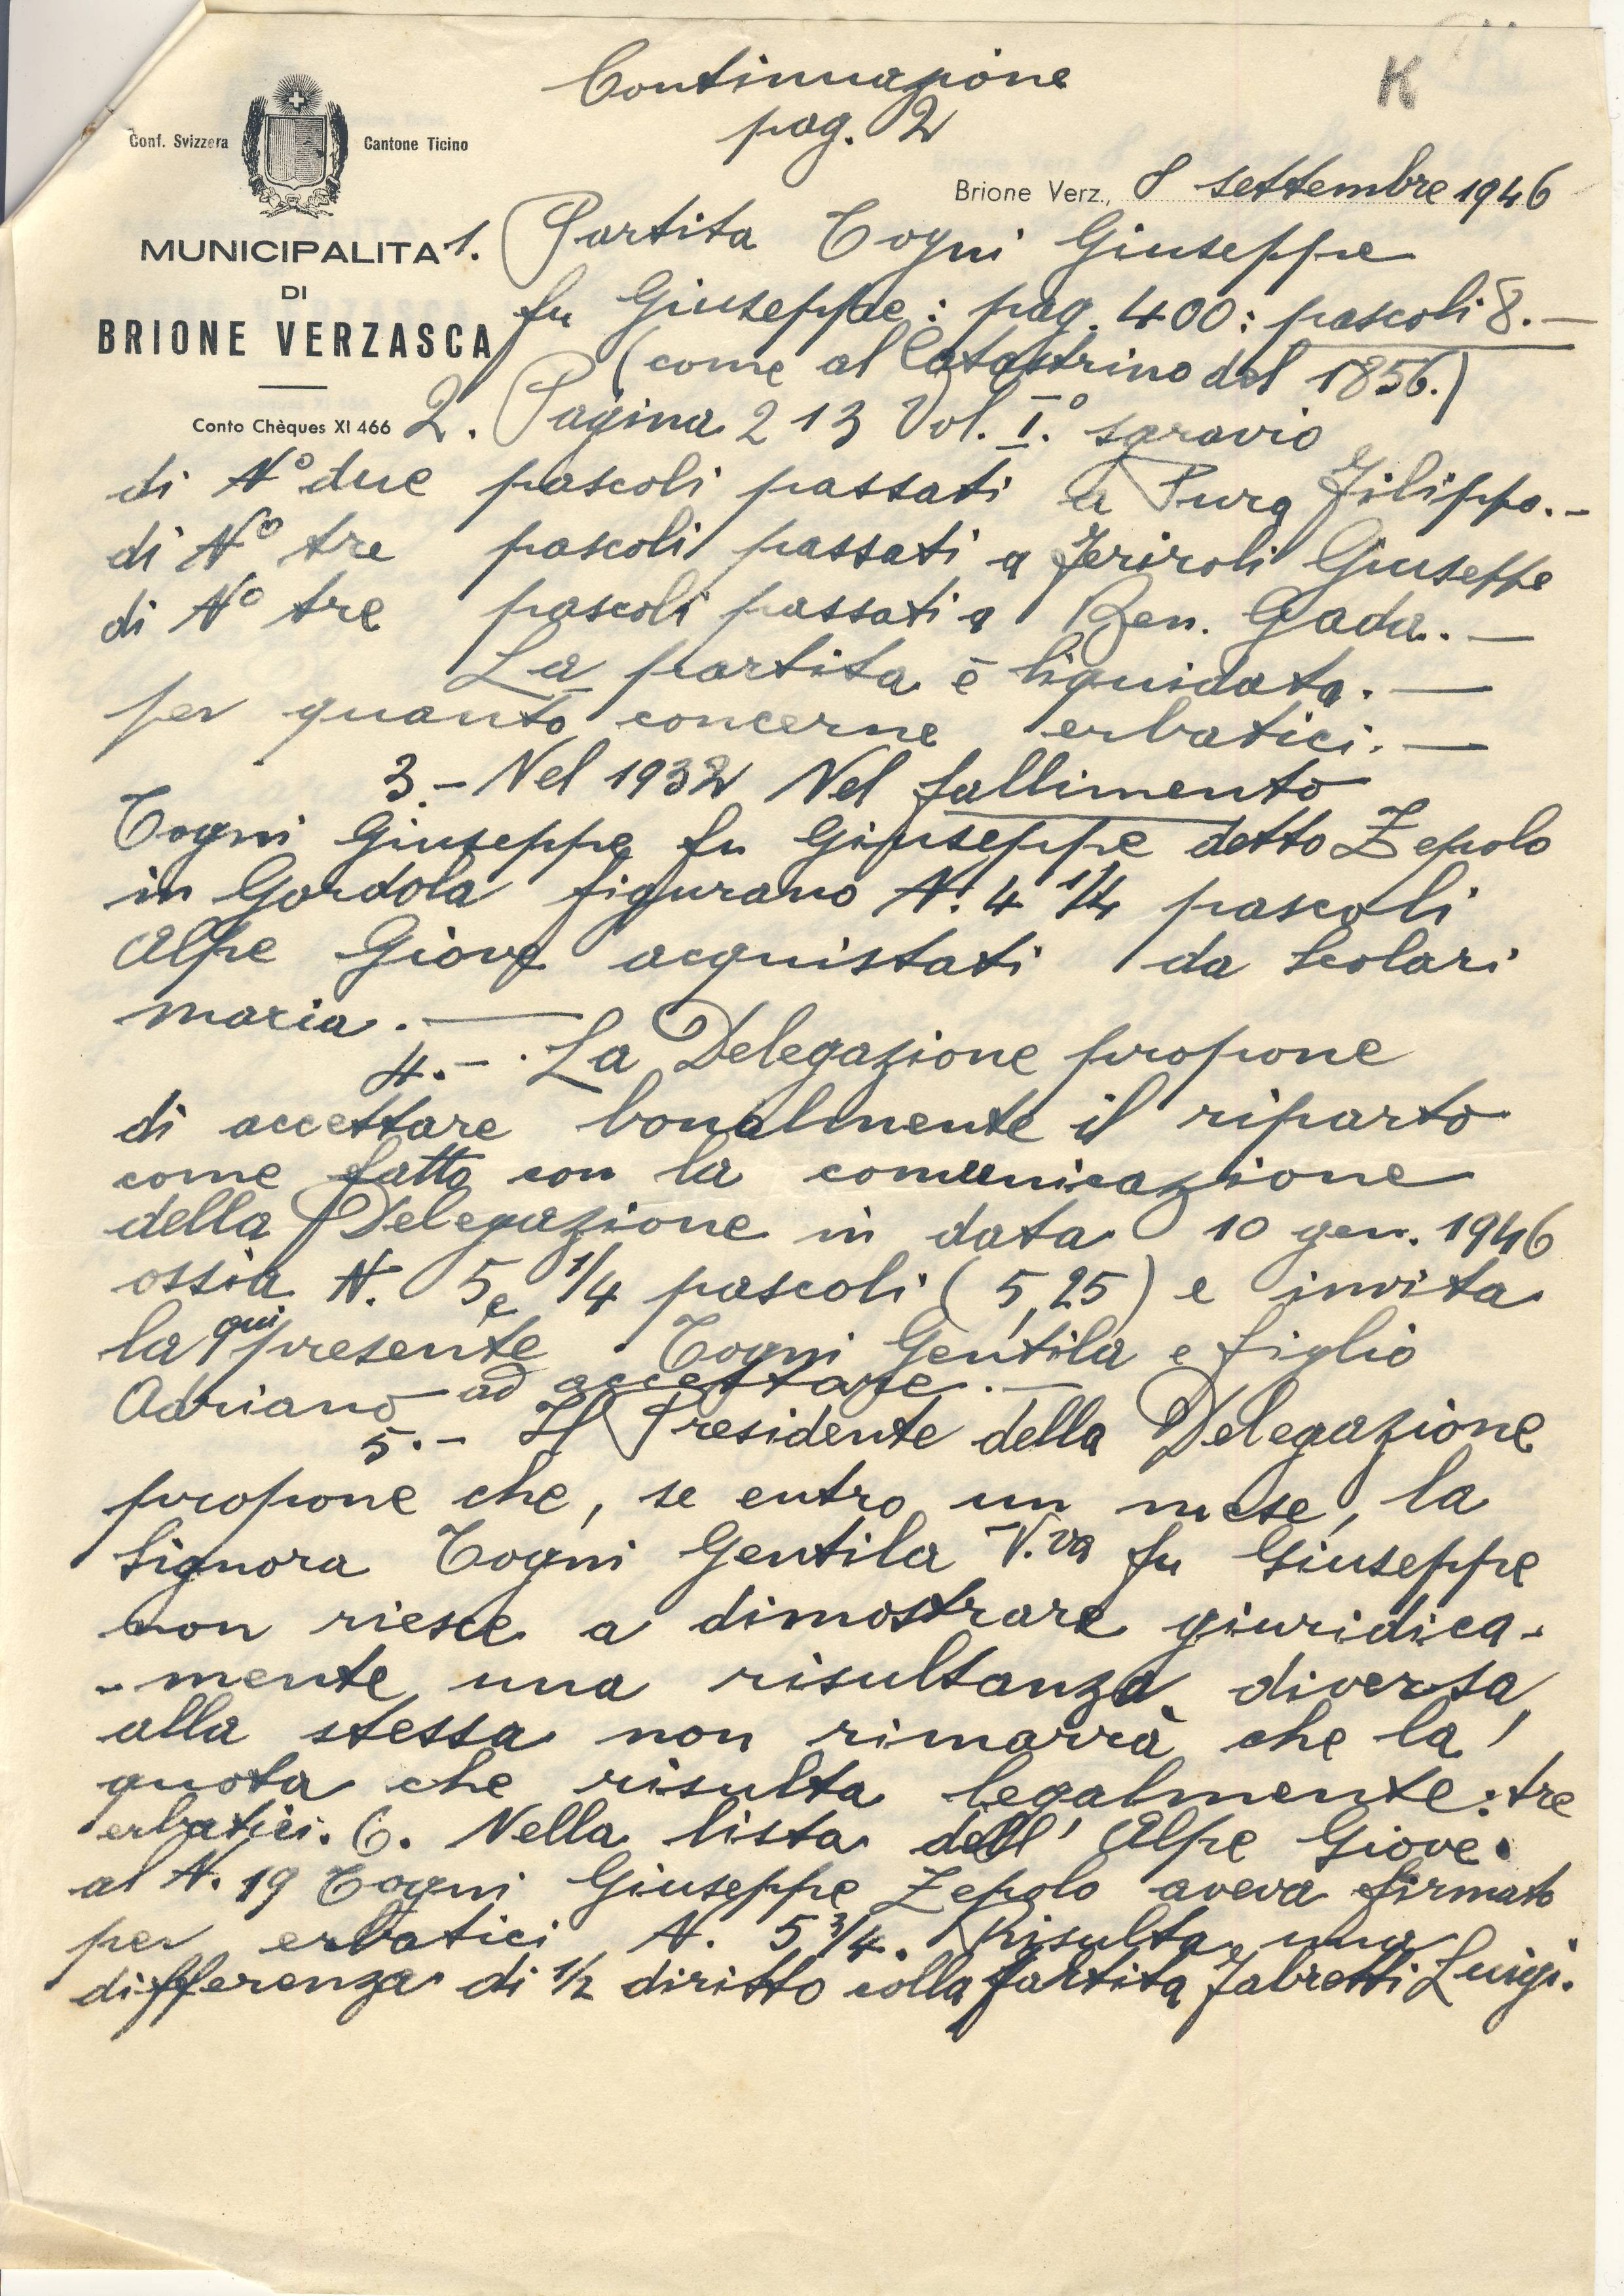 Continuazione
pag. 2
K
Conf. Svizzera Cantone Ticino
Brione Verz., 8 settembre 1946
MUNICIPALITA
DI
BRIONE VERZASCA
Conto Chèques XI 466
1. Partita Togni Giuseppe
fu Giuseppe: pag. 400: pascoli 8.—
(come al Catastrino del 1856.)
2. Pagina 213 Vol. I.° sgravio
di N° due pascoli passati a Surg Filippo.-
di N° tre pascoli passati a Feriroli Giuseppe
di N° tre pascoli passati a Ben. Gada.—
La partita è liquidata.—
per quanto concerne erbatici.—
3.- Nel 1932 Nel fallimento
Togni Giuseppe fu Giuseppe detto Zepolo
in Gordola figurano N. 4 1/4 pascoli
Alpe Giove acquistati da Scolari
Maria.—
4.- La Delegazione propone
di accettare bonalmente il riparto
come fatto con la comunicazione
della Delegazione in data 10 gen. 1946
ossia N. 5 e 1/4 pascoli (5,25) e invita
la qui presente Togni Gentila e figlio
Adriano ad accettare.—
5.- Il Presidente della Delegazione
propone che, se entro un mese, la
Signora Togni Gentila V.va fu Giuseppe
non riesce a dimostrare giuridica-
-mente una risultanza diversa,
alla stessa non rimarrà che la
quota che risulta legalmente: tre
erbatici. 6. Nella lista dell' Alpe Giove.
al N. 19 Togni Giuseppe Zepolo aveva firmato
per erbatici N. 5 3/4. Risulta una
differenza di 1/2 diritto colla partita Fabretti Luigi.